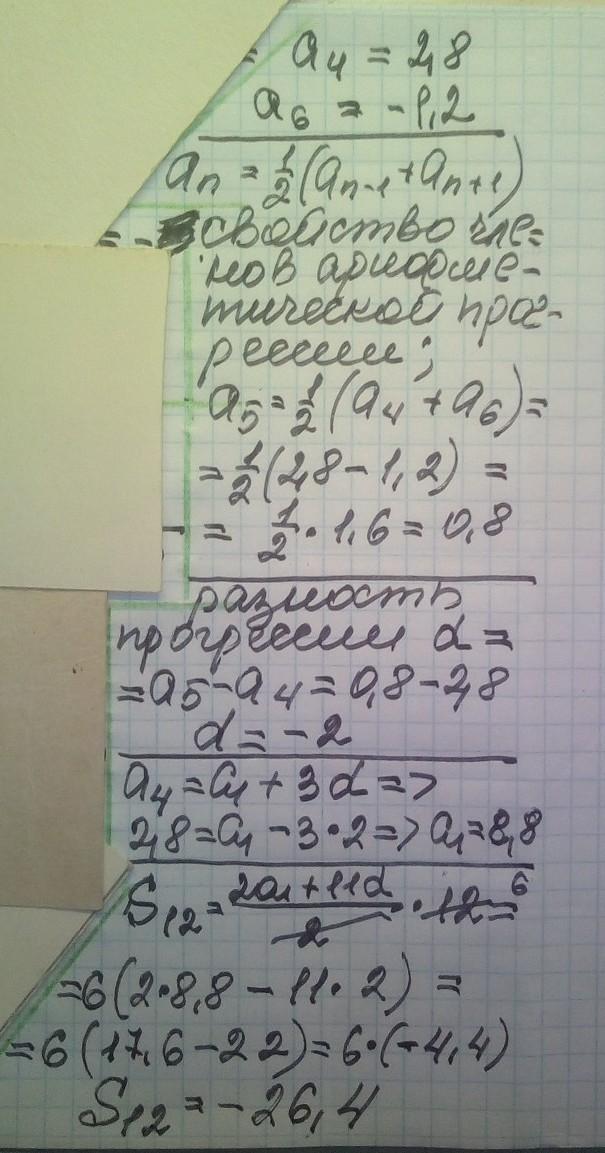 = a₄ = 2,8
a₆ = -1,2
aₙ = 1/2 (aₙ₋₁ + aₙ₊₁)
= - свойство чле=
нов арифме-
тической прог-
рессии;
a₅ = 1/2 (a₄ + a₆) =
= 1/2 (2,8 - 1,2) =
- = 1/2 · 1,6 = 0,8
разность
прогрессии d =
= a₅ - a₄ = 0,8 - 2,8
d = -2
a₄ = a₁ + 3d =>
2,8 = a₁ - 3·2 => a₁ = 8,8
S₁₂ = (2a₁ + 11d)/2 · 12 = 6
= 6(2·8,8 - 11·2) =
= 6(17,6 - 22) = 6·(-4,4)
S₁₂ = -26,4